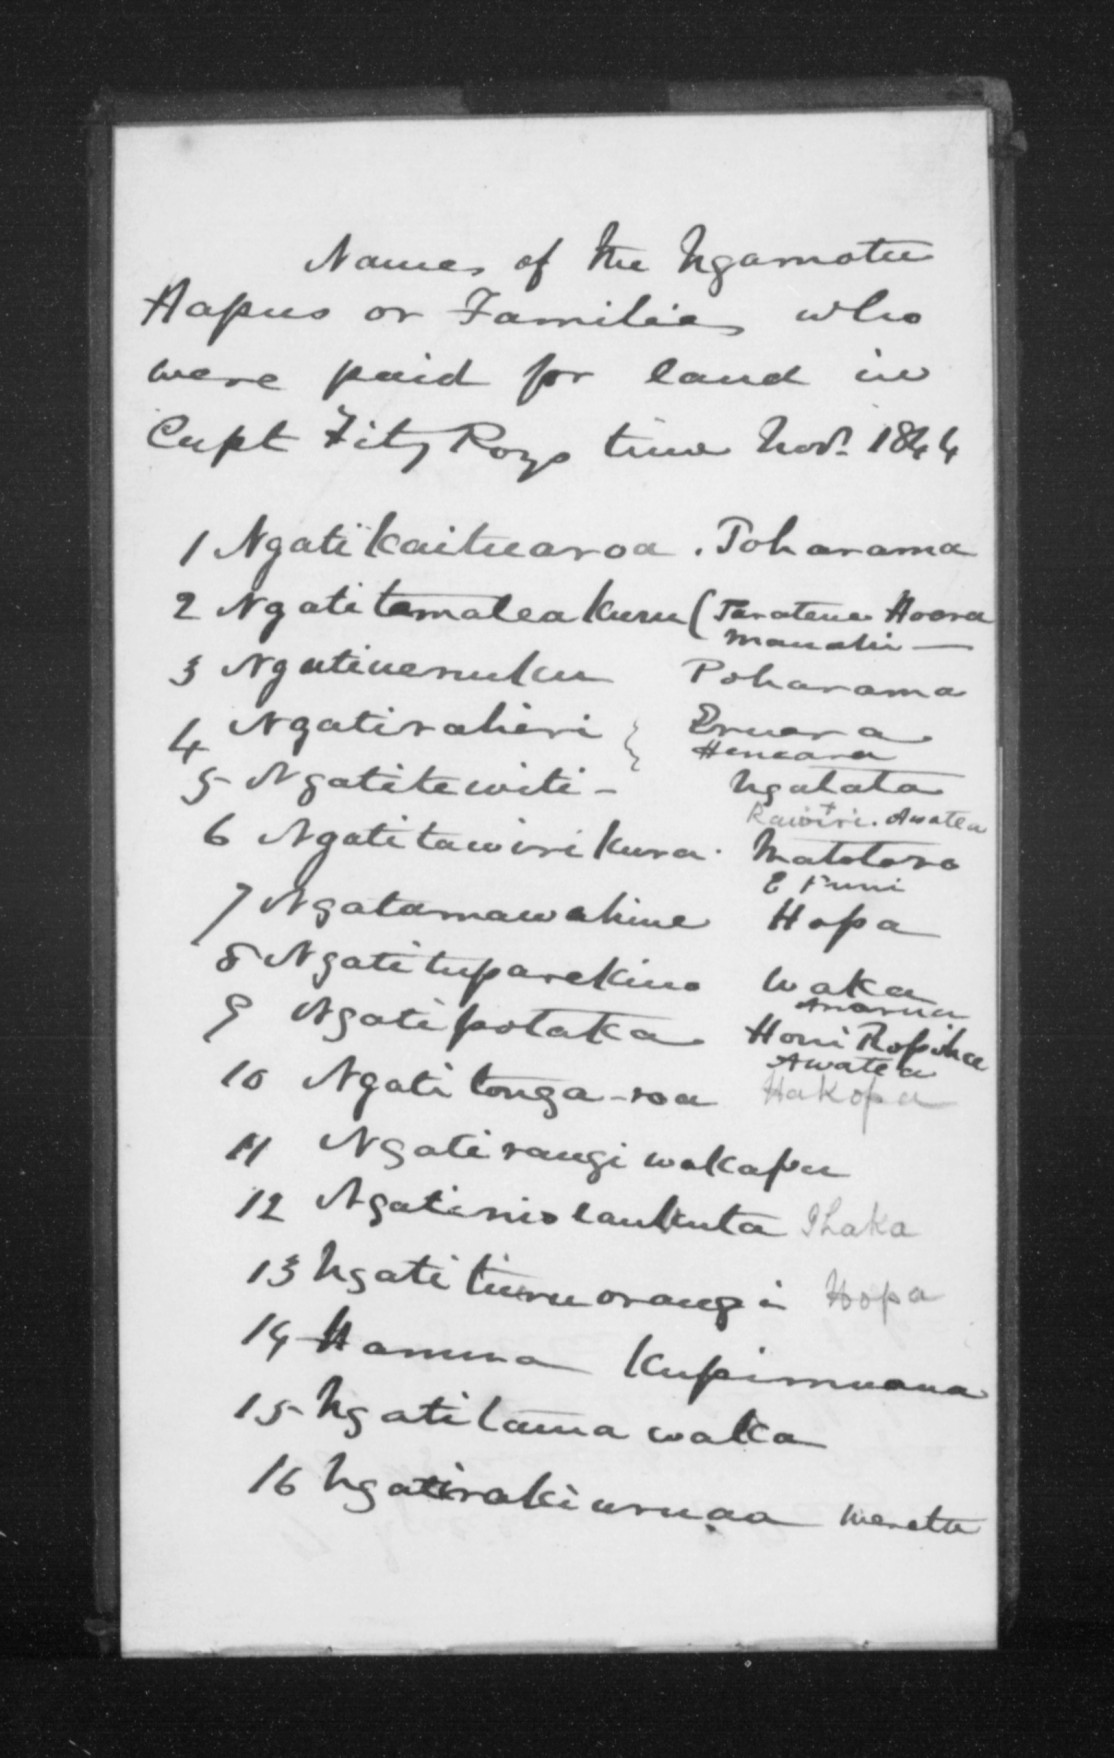 Names of the Ngamotu
Hapus or Families who
were paid for land in
Capt Fitz Roys time Novr. 1844
1 Ngatikaituaroa . Poharama
2 Ngatitemateakuru ( Taratene Hoera
Manahi —
3 Ngatiuenuku Poharama
4 Ngatirahiri { Eruera
Heneara
5 Ngatitewiti - Ngatata
Rawiri. Awatea
6 Ngatitawirikura . Matotoro
E Puni
7 Ngatamawahine Hopa
8 Ngatituparekino Waka
9 Ngatipotaka Honi Ropiha
Awatea
10 Ngatitonga-roa Hakopa
11 Ngatirangiwakapu
12 Ngati Ihaka
13 Ngatituruorangi Hopa
14 Hamua Kupimuana
15 Ngatitamawaka
16 Ngatirakiuruaa